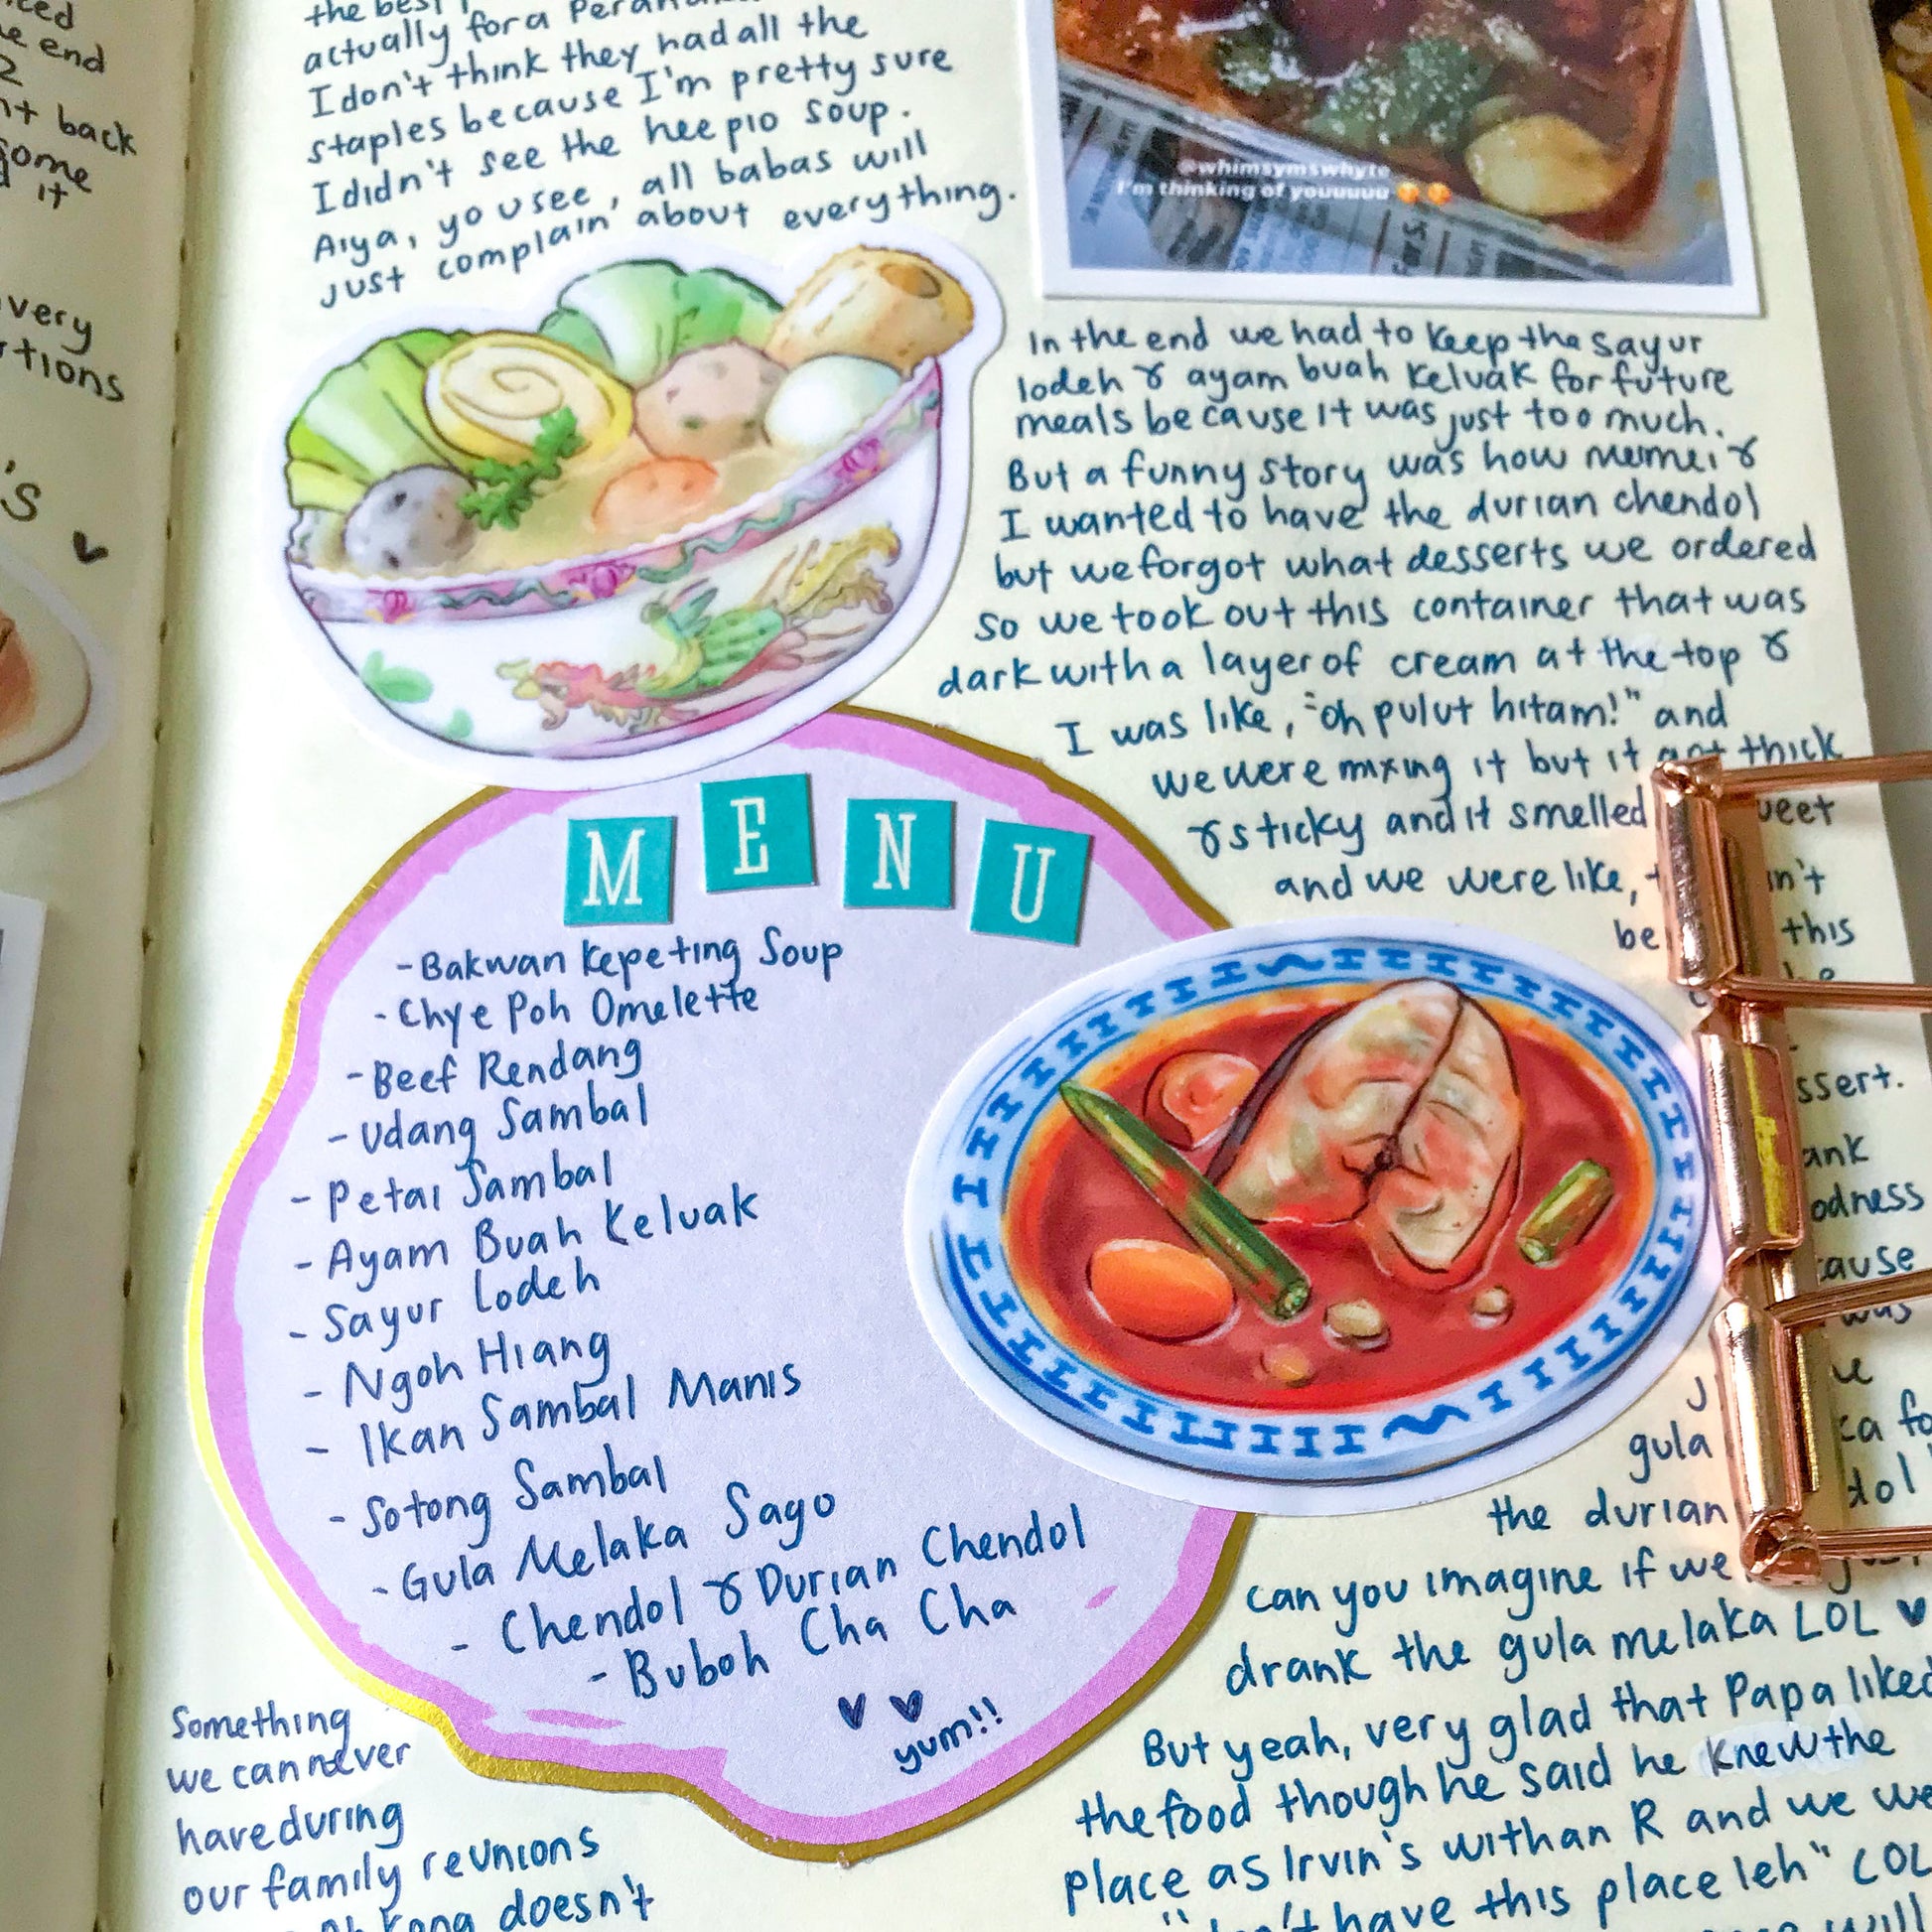 ced
e end
2
nt back
some
d it
very
rtions
's
the best
actually for a Peranakan
I don't think they had all the
staples because I'm pretty sure
I didn't see the hee pio soup.
Aiya, you see, all babas will
just complain about everything.
@whimsymswhyte
I'm thinking of youuuuu
In the end we had to keep the sayur
lodeh & ayam buah keluak for future
meals because it was just too much.
But a funny story was how meimei &
I wanted to have the durian chendol
but we forgot what desserts we ordered
so we took out this container that was
dark with a layer of cream at the top &
I was like, "oh pulut hitam!" and
we were mixing it but it got thick
& sticky and it smelled
and we were like,
be this
ssert.
ank
odness
cause
was
gula
the durian
can you imagine if we
drank the gula melaka LOL
But yeah, very glad that Papa liked
the food though he said he knew the
place as Irvin's with an R and we
have this place leh" LOL
MENU
- Bakwan Kepeting Soup
- Chye Poh Omelette
- Beef Rendang
- Udang Sambal
- Petai Sambal
- Ayam Buah Keluak
- Sayur Lodeh
- Ngoh Hiang
- Ikan Sambal Manis
- Sotong Sambal
- Gula Melaka Sago
- Chendol & Durian Chendol
- Buboh Cha Cha
yum!!
Something
we can never
have during
our family reunions
doesn't